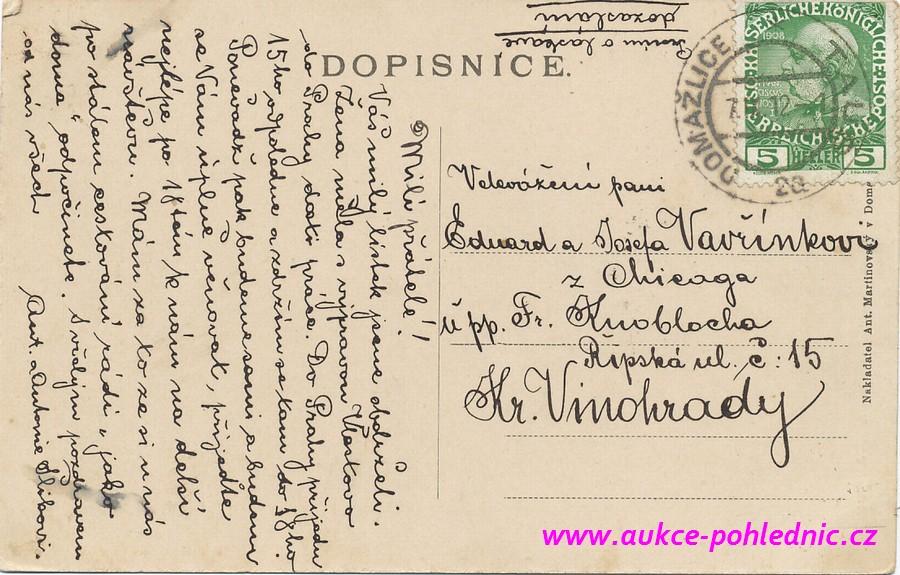 Prosím o laskavé
dozaslání
DOPISNICE.
Milí přátelé!
Váš milý lístek jsme obdrželi.
Žena měla s výpravou Vlastovo
do Prahy dosti práce. Do Prahy přijedu
15ho odpoledne a zdržím se tam do 18ho
Ponevadž pak budeme sami a budem
se Vám úplně věnovat, přijedte
nejlépe po 18tém k nám na delší
návštěvu. Mám za to že si u nás
po stálém cestování rádi „jako
doma" odpočinete. S vřelým pozdravem
od nás všech
Ant. a Antonie
SERLICHE KÖNIGLICHE
1908
OESTERREICHISCHE
5 HELLER 5
DOMAŽLICE
2a
Velevážení paní
Eduard a Josefa Vavřínkovi
z Chicaga
u pp. Fr. Knoblocha
Řípská ul. č: 15
Kr. Vinohrady
Nakladatel Ant. Martinovský v Dom
www.aukce-pohlednic.cz